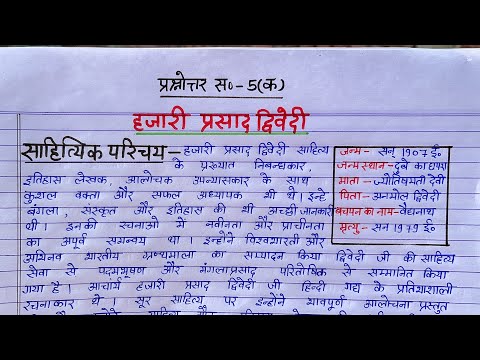 प्रश्नोत्तर स०-5(क)
हजारी प्रसाद द्विवेदी
साहित्यिक परिचय- हजारी प्रसाद द्विवेदी साहित्य
के प्रख्यात निबन्धकार,
इतिहास लेखक, आलोचक उपन्यासकार के साथ
कुशल वक्ता और सफल अध्यापक भी थे। इन्हे
बंगला, संस्कृत और इतिहास की भी अच्छी जानकारी
थी। इनकी रचनाओं में नवीनता और प्राचीनता
का अपूर्व समन्वय था। इन्होंने विश्वभारती और
अभिनव भारतीय ग्रन्थमाला का सम्पादन किया द्विवेदी जी की साहित्य
सेवा से पद्मभूषण और मंगलाप्रसाद पारितोषिक से सम्मानित किया
गया है। आचार्य हजारी प्रसाद द्विवेदी जी हिन्दी गद्य के प्रतिभाशाली
रचनाकार थे। सूर साहित्य पर इन्होंने भावपूर्ण आलोचना प्रस्तुत
जन्म- सन् 1907 ई०
जन्म स्थान- दुबे का छपरा
माता- ज्योतिषमती देवी
पिता- अनमोल द्विवेदी
बचपन का नाम- वैद्यनाथ
मृत्यु- सन 1979 ई०